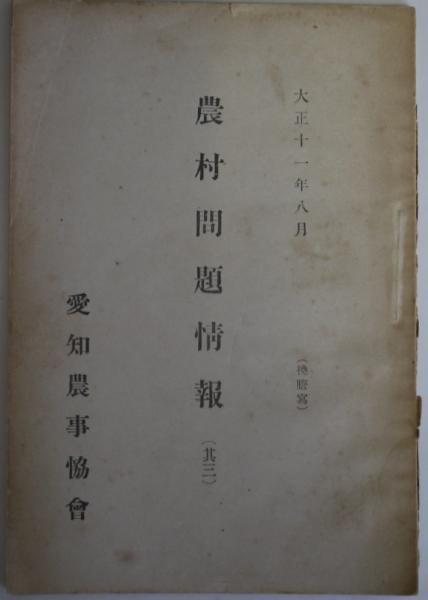 大正十一年八月
（換謄寫）
農村問題情報（其三）
愛知農事協會